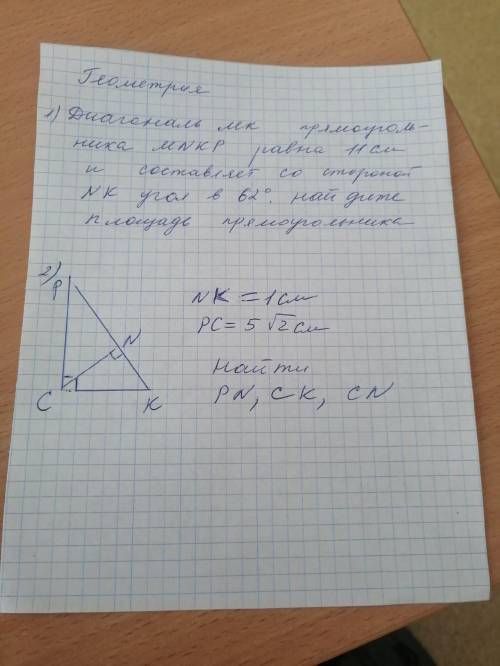 Геометрия
1) Диагональ МК прямоуголь-
ника MNKP равна 11 см
и составляет со стороной
NK угол в 62°. Найдите
площадь прямоугольника
2)
P
NK = 1 см
PC = 5 √2 см
N
Найти
C K
PN, CK, CN